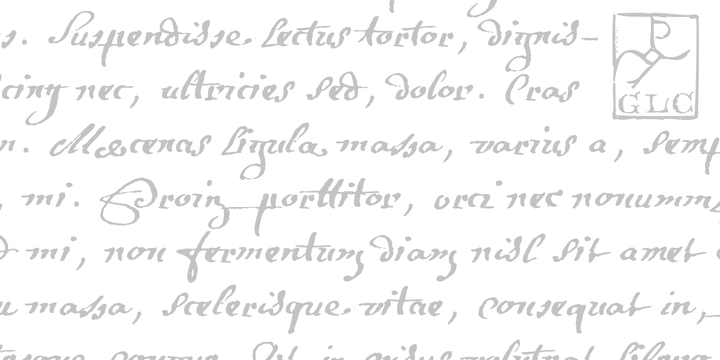 s. Suspendisse lectus tortor, dignis-
GLC
cing nec, ultricies sed, dolor. Cras
n. Maecenas ligula massa, varius a, semp
, mi. Proin porttitor, orci nec nonumm
d mi, non fermentum diam nisl sit amet
u massa, scelerisque vitae, consequat in,